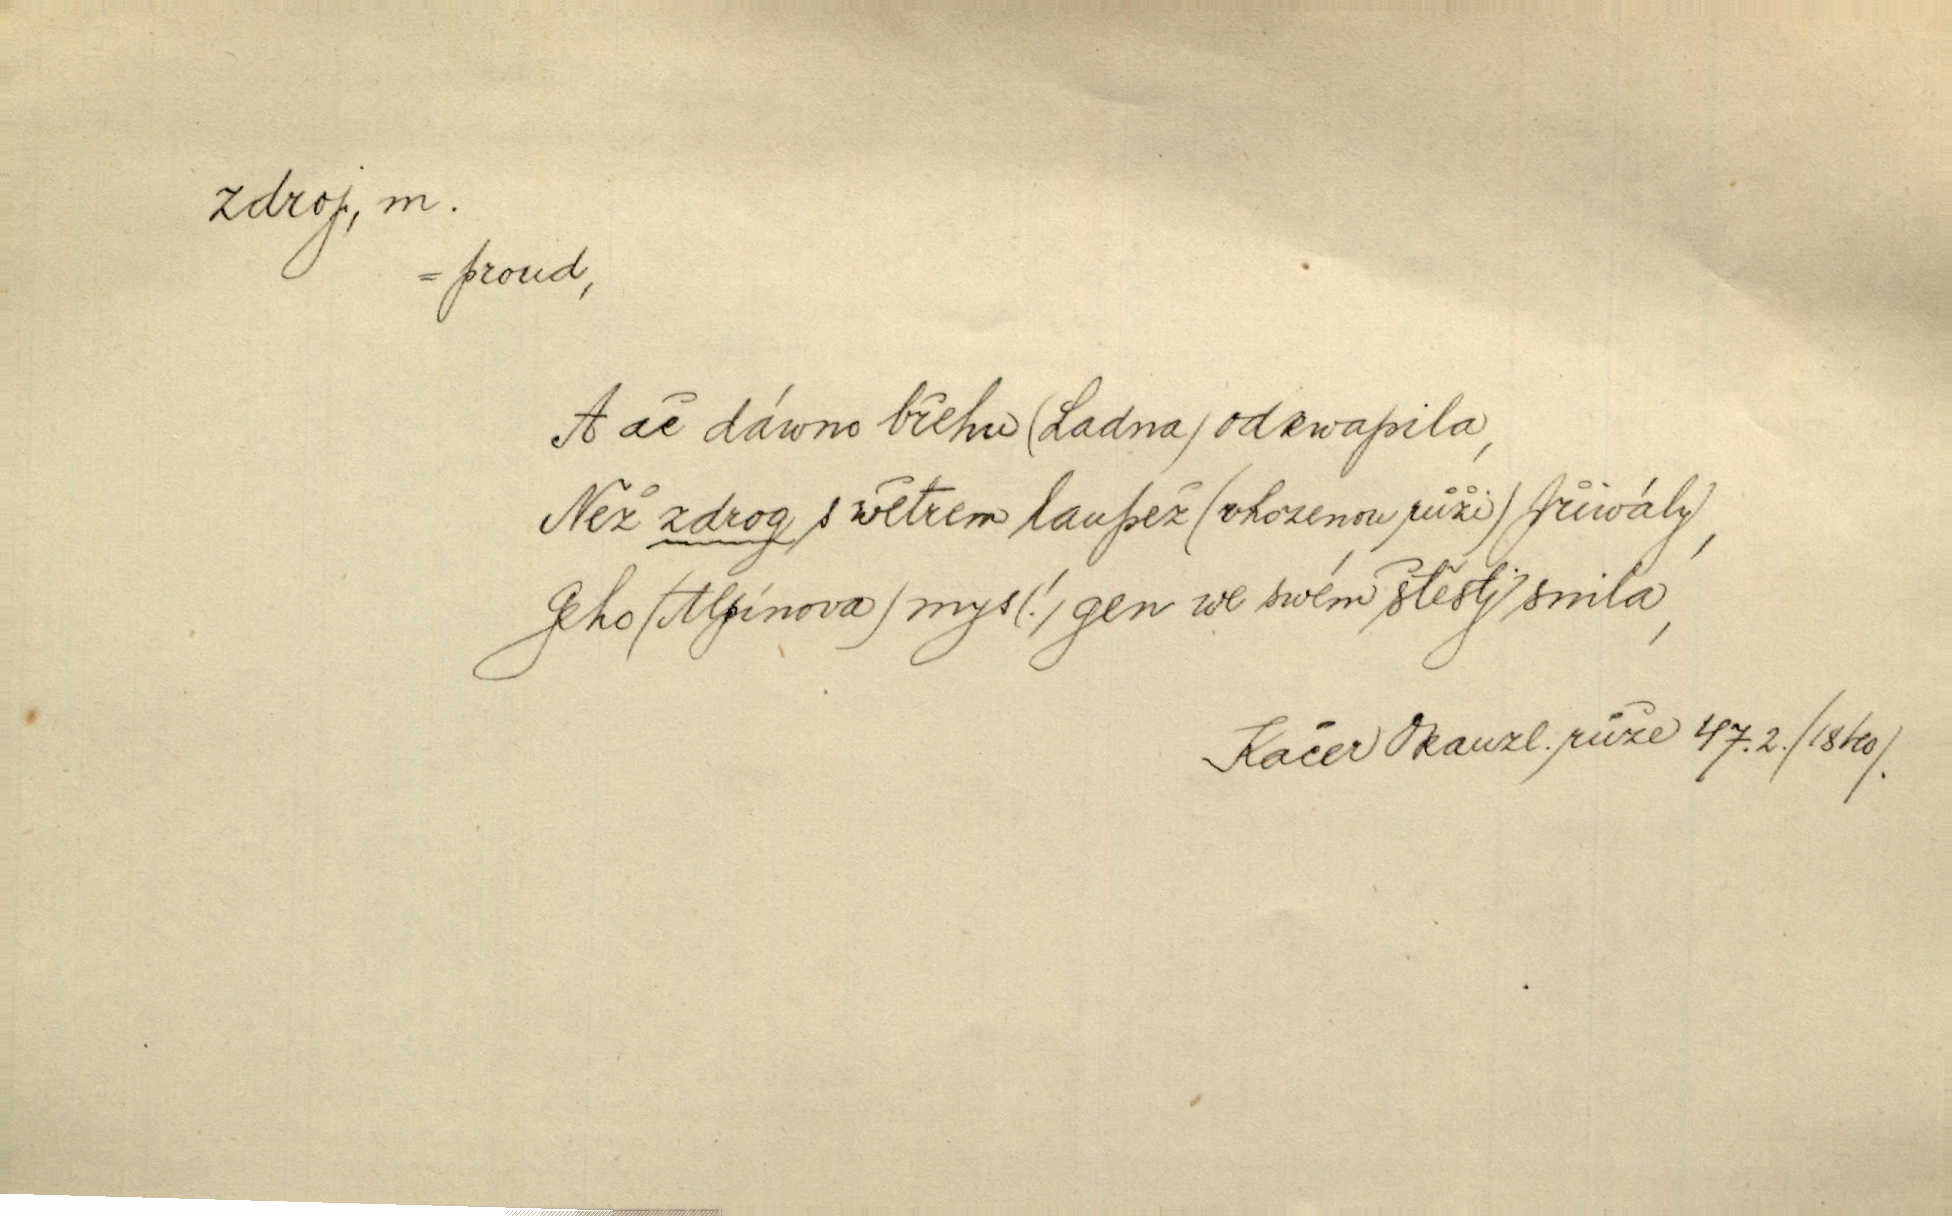 zdroj, m.
= proud,
A ač dáwno břehu (Ladna) odkwapila,
Než zdrog s wětrem laupež (vhozenou růži) přiwály,
Geho (Alpínova) mysl(!) gen we swém štěstj snila,
Kačer Okauzl. růže 47.2. (1840).